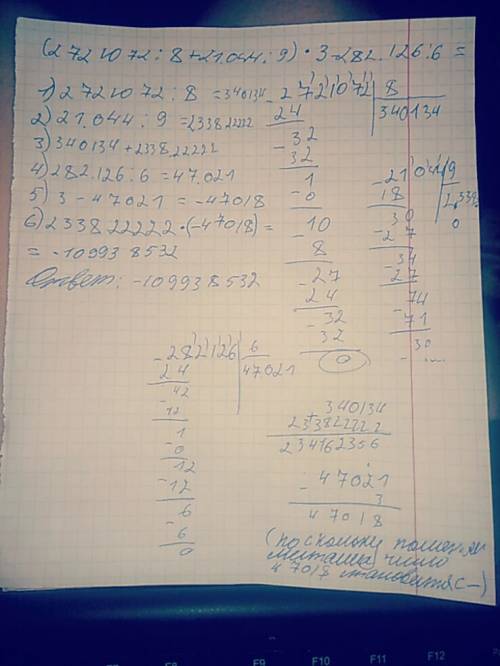 (2721072:8+21.044:9)·3-282.126:6=
1) 2721072:8=340134
2) 21.044:9=233822222
3) 340134+233822222
4) 282.126:6=47.021
5) 3-47021=-47018
6) 233822222·(-47018)=
=-109938532
Ответ: -109938532
2721072 8
24 340134
-32
32
1
-0
10
-8
-27
24
-32
32
0
-21044 9
18
30
-27
-34
27
-74
-71
30
-282126 6
24 47021
-42
12
1
-0
12
-12
6
-6
0
340134
+
233822222
234162356
-47021
3
47018
(поскольку
число
47018 становится с -)
F9
F10
F11
F12